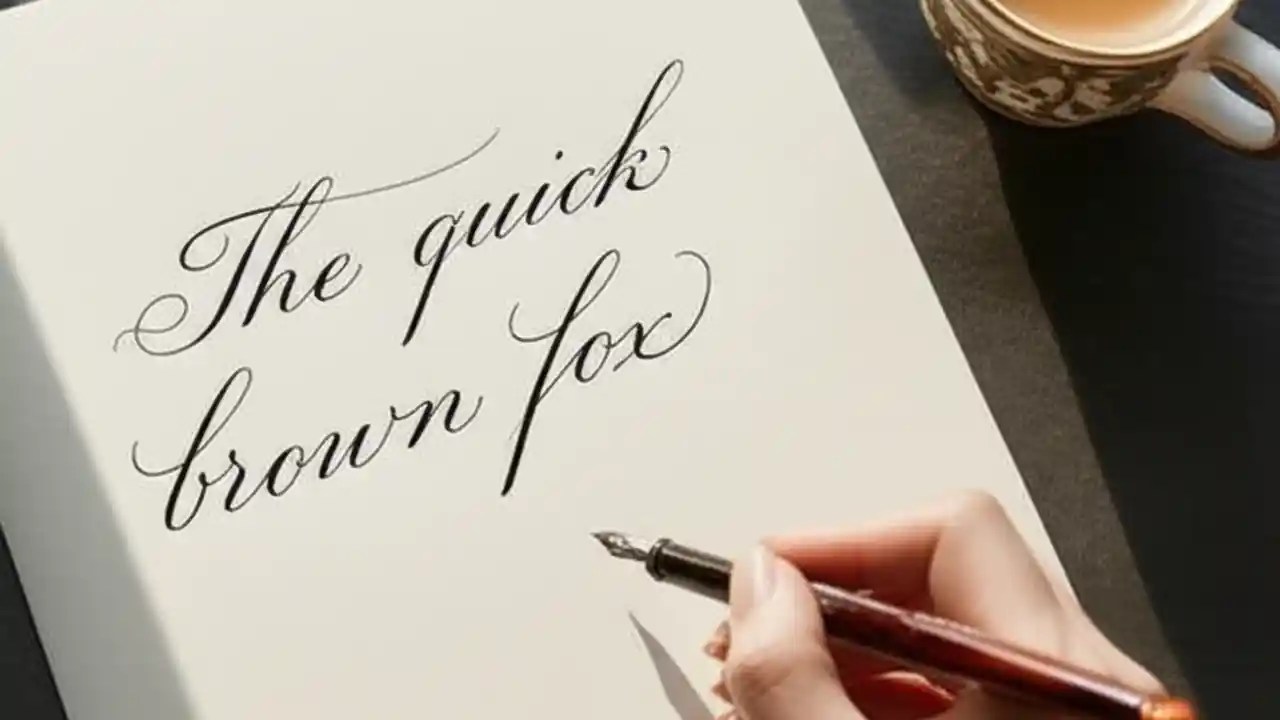 The quick
brown fox